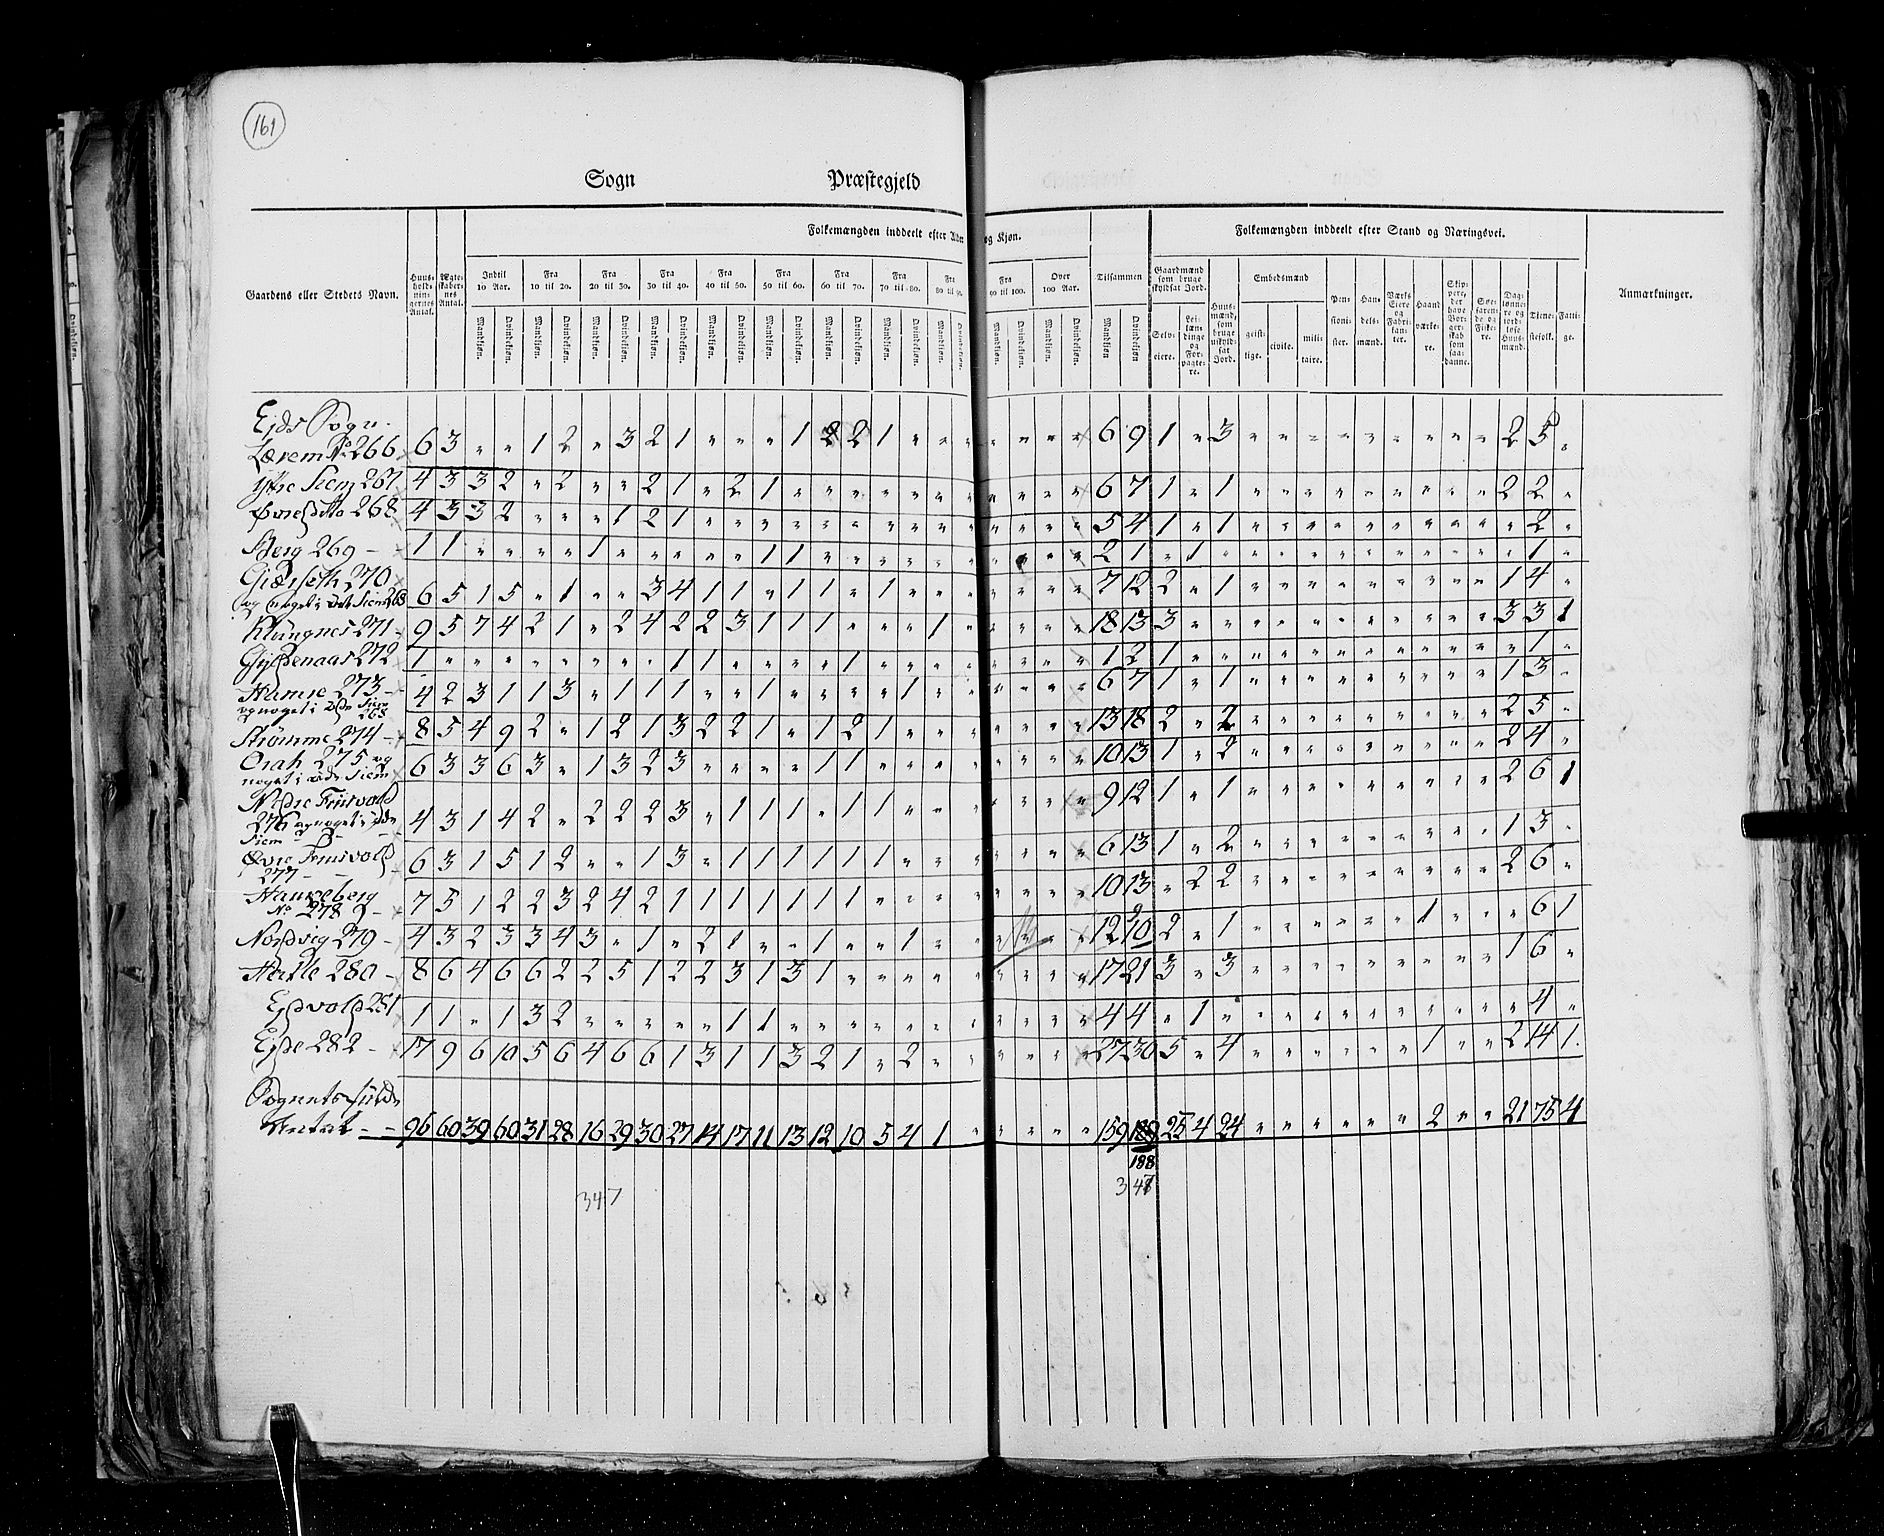 161
Sogn Præstegjeld
Folkemængden inddeelt efter Alder og Kjøn. Folkemængden inddeelt efter Stand og Næringsvei.
Gaardens eller Stedets Navn. Huus-holdnin-gernes Antal. Ægte-skaber-nes Antal. Indtil 10 Aar. Fra 10 til 20. Fra 20 til 30. Fra 30 til 40. Fra 40 til 50. Fra 50 til 60. Fra 60 til 70. Fra 70 til 80. Fra 80 til 90. Fra 90 til 100. Over 100 Aar. Tilsammen Gaardmænd som bruge skyldsat Jord. Huus-mænd, som bruge uskyld-sat Jord. Embedsmænd Pen-sioni-ster. Han-dels-mænd. Værks Eiere og Fabri-kan-ter. Haand værke-re. Skip-pere, der have Bor-ger-skab som saa-danne. Søe-faren-de og Fiske-re. Dag-lønne-re og jord-løse Huus-mænd. Tjene-stefolk. Fatti-ge. Anmærkninger.
Mandkjøn. Qvindekjøn. Mandkjøn. Qvindekjøn. Mandkjøn. Qvindekjøn. Mandkjøn. Qvindekjøn. Mandkjøn. Qvindekjøn. Mandkjøn. Qvindekjøn. Mandkjøn. Qvindekjøn. Mandkjøn. Qvindekjøn. Mandkjøn. Qvindekjøn. Mandkjøn. Qvindekjøn. Mandkjøn. Qvindekjøn. Mandkjøn. Qvindekjøn Selv-eiere. Lei-læn-dinge og For-pagte-re. geist-lige. civile. mili-taire.
Ejds Sogn.
Lærem No 266 6 3 " " 1 2 " 3 2 1 " " " 1 2 2 1 " " " " " " " 6 9 1 " 3 " " " " " " " " " 2 5 "
Ytre Siem 267 4 3 3 2 " 2 " " 2 1 " 2 1 " " " " " " " " " " " 6 7 1 " 1 " " " " " " " " " 2 2 "
Øvre ditto 268 4 3 3 2 " " " 1 2 1 " " " " " " " " " " " " " " 5 4 1 " 1 " " " " " " " " " " 2 "
Berg 269 1 1 " " " " 1 " " " " " 1 1 " " " " " " " " " " 2 1 " 1 " " " " " " " " " " " 1 "
Giærseth 270
og noget i Øvre Siem 268 6 5 1 5 " 1 " " 3 4 1 1 " 1 1 " 1 " " " " " " 7 12 2 " 1 " " " " " " " " " 1 4 "
Klungnes 271 9 5 7 4 2 1 " 2 4 2 2 3 1 1 1 " " " 1 " " " " " 18 13 3 " " " " " " " " " " " 3 3 1
Gyldenaas 272 1 " " " " " " " " 1 1 " " " " 1 " " " " " " " " 1 2 1 " " " " " " " " " " " " 1 "
Hamre 273 4 2 3 1 1 3 " 1 1 1 " " 1 " " " " 1 " " " " " " 6 7 1 " 1 " " " " " " " " " 1 3 "
og noget i Øvre Siem
268
Strømme 274 8 5 4 9 2 " 1 2 1 3 2 2 1 " 1 2 1 " " " " " " " 13 18 2 " 2 " " " " " " " " " 2 5 "
Orah 275 og
noget i Øvre Siem 6 3 3 6 3 " 1 3 2 3 " " " " 1 1 " " " " " " " " 10 13 1 " 2 " " " " " " " " " 2 4 "
Nedre Frisvold
276 og noget i Øvre 4 3 1 4 2 " 2 2 2 3 " 1 1 1 " 1 1 " " " " " " 9 12 1 " 1 " " " " " " " " " 2 6 1
Siem
Øvre Frusvold
277 6 3 1 5 1 2 " " 1 3 " 1 1 1 1 1 1 " " " " " " " 6 13 1 " 2 " " " " " " " " " 1 3 "
Haukeberg
No 278 7 5 1 2 2 3 2 4 2 1 1 1 1 1 1 1 " " " " " " " " 10 13 " 2 2 " " " " " " " " " 2 6 "
Nordvig 279 4 3 2 3 3 4 3 " 1 " 2 1 " " 1 " 1 " " " " " " 12 10 9 2 " 1 " " " " " " 1 " " " 6 1
Herrle 280 8 6 4 6 6 2 2 5 1 2 2 3 1 3 1 " " " " " " " " " 17 21 3 " 3 " " " " " " " " " 1 6 "
Ejdvold 281 1 1 " 1 3 2 " " " " " 1 1 " " " " " " " " " " " 4 4 " 1 " " " " " " " " " " " 4 "
Ejde 282 17 9 6 10 5 6 4 6 6 1 3 1 1 3 2 1 " 2 " " " " " " 27 30 5 " 4 " " " " " " 1 " " 2 14 1
Sognets fulde
Antal 96 60 39 60 31 28 16 29 30 27 14 17 11 13 12 10 5 4 1 " " " " " 159 189 25 4 24 " " " " " " 2 " " 21 75 4
188
347 347